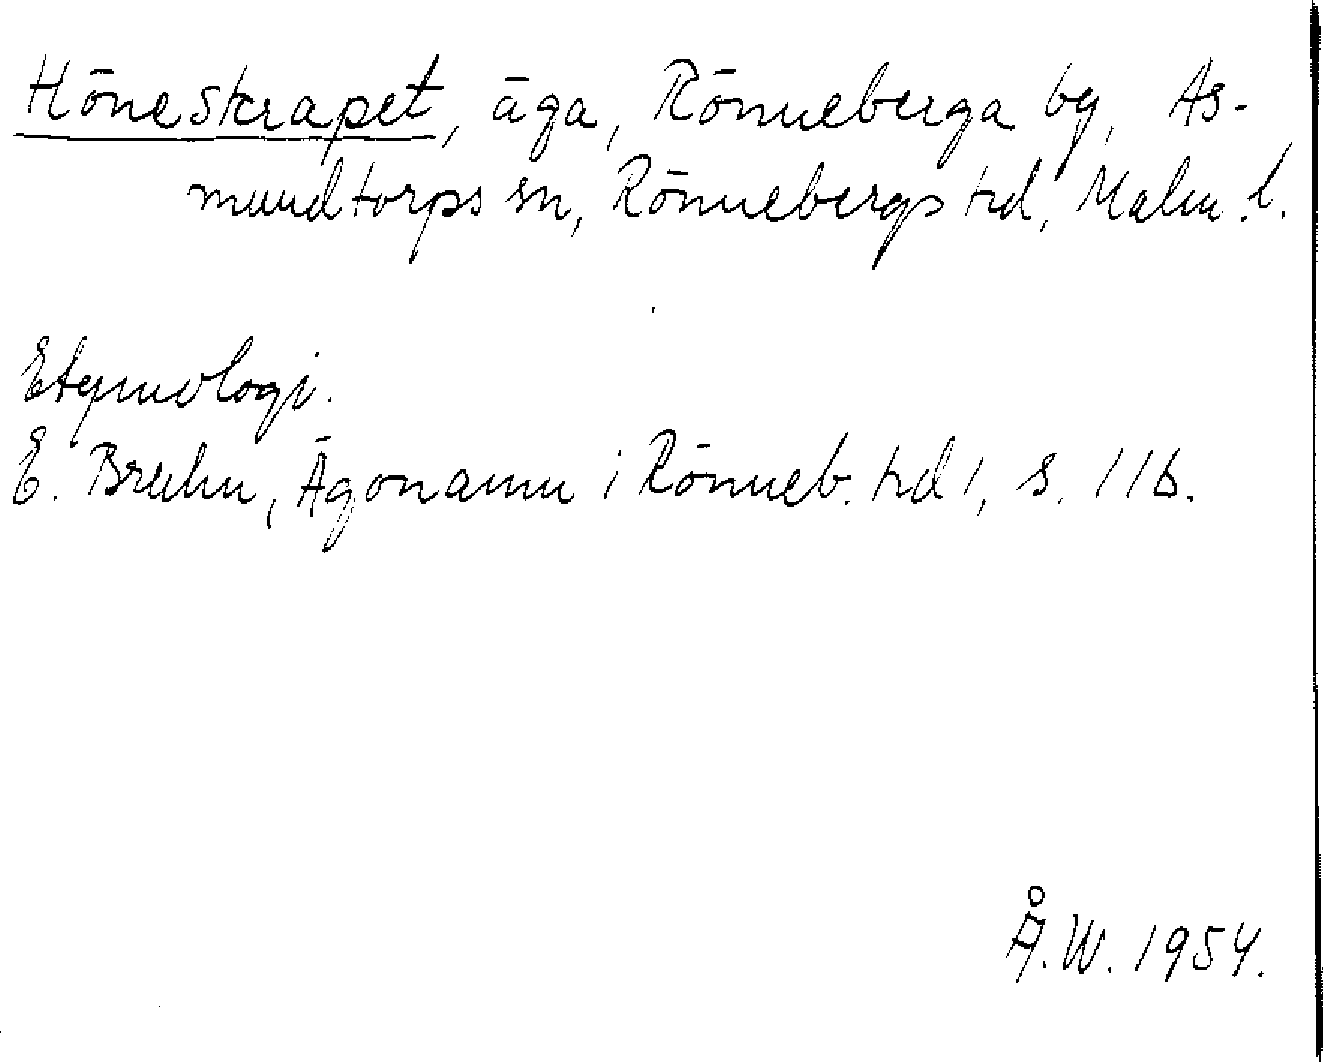 Höneskrapet, äga, Rönneberga by, As-
mundtorps sn, Rönnebergs hd, Malm. l.
Etymologi.
E. Bruhn, Ägonamn i Rönneb. hd 1, s. 116.
Å. W. 1954.